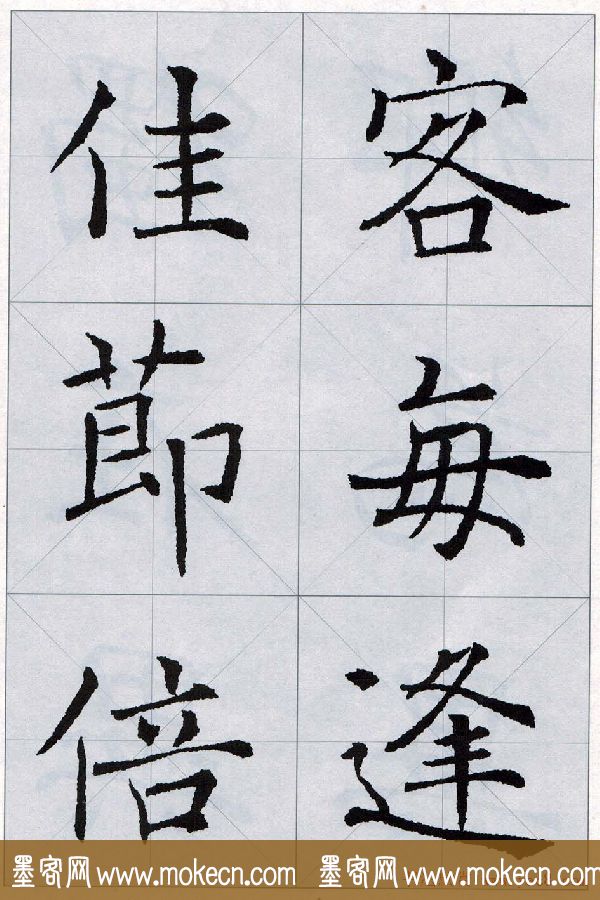 客每逢
佳節倍
墨客网 www.mokecn.com 墨客网 www.mokecn.com